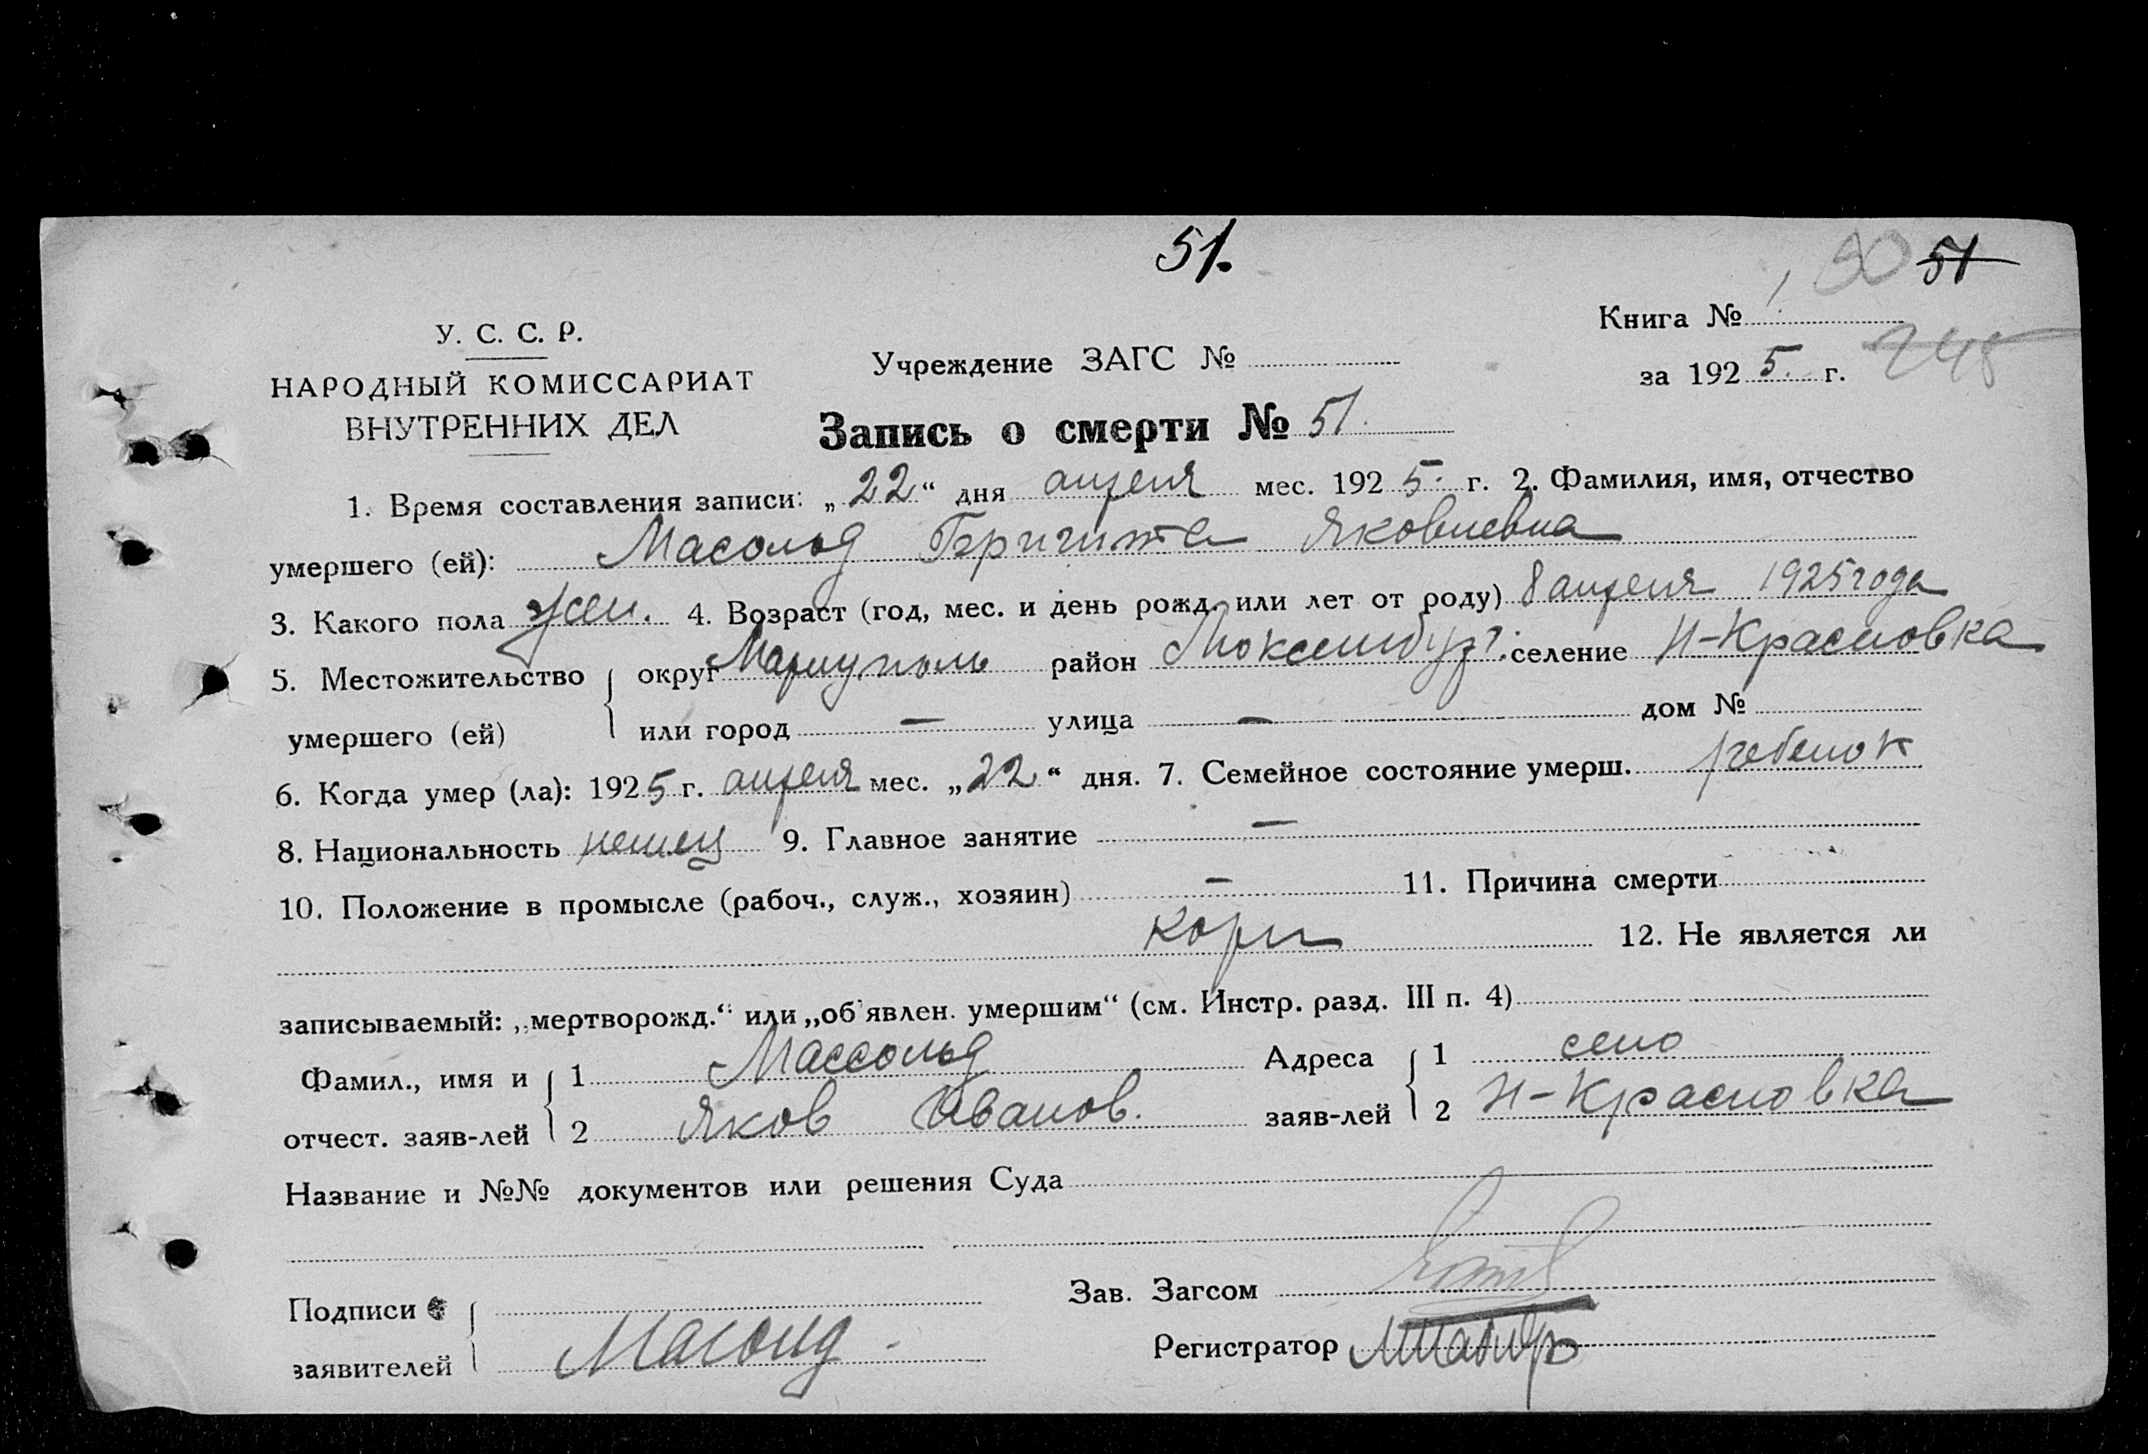 51.
80 51
У. С. С. Р.
НАРОДНЫЙ КОМИССАРИАТ
ВНУТРЕННИХ ДЕЛ
Учреждение ЗАГС №
Книга № 1
за 192 5. г. 248
Запись о смерти № 51.
1. Время составления записи: „22“ дня апреля мес. 192 5. г. 2. Фамилия, имя, отчество
умершего (ей): Масольд Бригитта Яковлевна
3. Какого пола жен. 4. Возраст (год, мес. и день рожд. или лет от роду) 8 апреля 1925 года
5. Местожительство умершего (ей) округ Мариуполь район селение Н-Красновка
или город — улица — дом №
6. Когда умер (ла): 192 5 г. апреля мес. „22“ дня. 7. Семейное состояние умерш. ребенок
8. Национальность немец 9. Главное занятие —
10. Положение в промысле (рабоч., служ., хозяин) — 11. Причина смерти
корь 12. Не является ли
записываемый: „мертворожд.“ или „об'явлен. умершим“ (см. Инстр. разд. III п. 4)
Фамил., имя и 1 Массольд Адреса 1 село
отчест. заяв-лей 2 Яков Иванов. заяв-лей 2 Н-Красновка
Название и №№ документов или решения Суда
Подписи Зав. Загсом
заявителей Масольд Регистратор